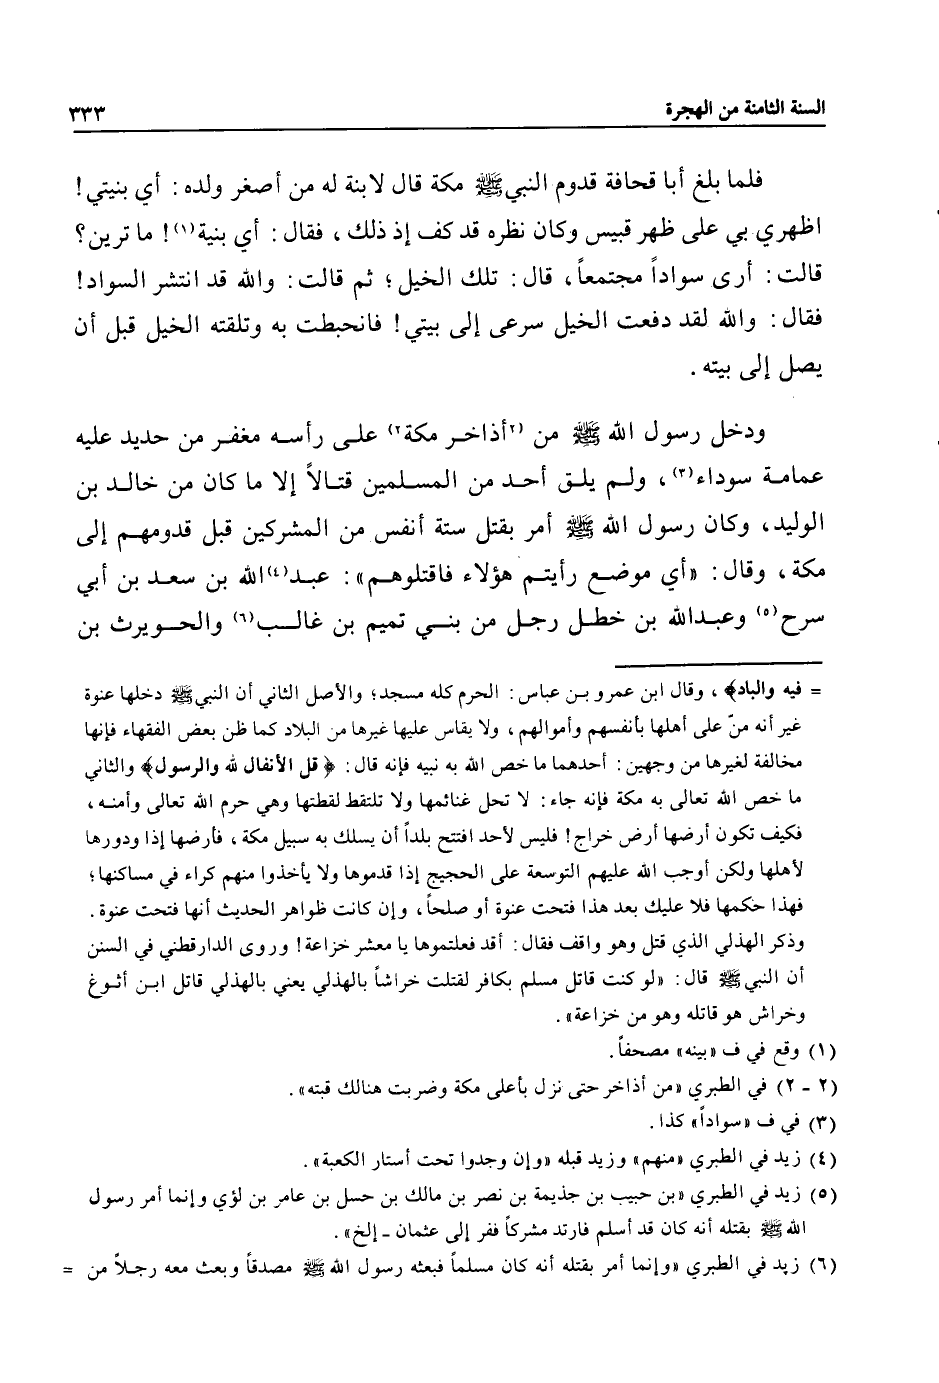 السنة الثامنة من الهجرة ٣٣٣
فلما بلغ أبا قحافة قدوم النبي ﷺ مكة قال لابنة له من أصغر ولده : أي بنيتي !
اظهري بي على ظهر قبيس وكان نظره قد كف إذ ذلك ، فقال : أي بنية(١)! ما ترين؟
قالت : أرى سواداً مجتمعاً ، قال : تلك الخيل ؛ ثم قالت : والله قد انتشر السواد!
فقال : والله لقد دفعت الخيل سرعى إلى بيتي! فانحبطت به وتلقته الخيل قبل أن
يصل إلى بيته .
ودخل رسول الله ﷺ من (٢أذاخر مكة٢) على رأسه مغفر من حديد عليه
عمامة سوداء(٣) ، ولم يلق أحد من المسلمين قتالاً إلا ما كان من خالد بن
الوليد، وكان رسول الله ﷺ أمر بقتل ستة أنفس من المشركين قبل قدومهم إلى
مكة ، وقال : «أي موضع رأيتم هؤلاء فاقتلوهم» : عبد(٤)الله بن سعد بن أبي
سرح(٥) وعبدالله بن خطل رجل من بني تميم بن غالب(٦) والحويرث بن
= فيه والباد﴾ ، وقال ابن عمرو بن عباس : الحرم كله مسجد؛ والأصل الثاني أن النبي ﷺ دخلها عنوة
غير أنه منّ على أهلها بأنفسهم وأموالهم ، ولا يقاس عليها غيرها من البلاد كما ظن بعض الفقهاء فإنها
مخالفة لغيرها من وجهين : أحدهما ما خص الله به نبيه فإنه قال : ﴿ قل الأنفال لله والرسول﴾ والثاني
ما خص الله تعالى به مكة فإنه جاء : لا تحل غنائمها ولا تلتقط لقطتها وهي حرم الله تعالى وأمنه ،
فكيف تكون أرضها أرض خراج! فليس لأحد افتتح بلداً أن يسلك به سبيل مكة ، فأرضها إذا ودورها
لأهلها ولكن أوجب الله عليهم التوسعة على الحجيج إذا قدموها ولا يأخذوا منهم كراء في مساكنها؛
فهذا حكمها فلا عليك بعد هذا فتحت عنوة أو صلحاً ، وإن كانت ظواهر الحديث أنها فتحت عنوة .
وذكر الهذلي الذي قتل وهو واقف فقال : أقد فعلتموها يا معشر خزاعة! وروى الدارقطني في السنن
أن النبي ﷺ قال : «لو كنت قاتل مسلم بكافر لقتلت خراشاً بالهذلي يعني بالهذلي قاتل ابن أثوغ
وخراش هو قاتله وهو من خزاعة» .
(١) وقع في ف «بينه» مصحفاً .
(٢ - ٢) في الطبري «من أذاخر حتى نزل بأعلى مكة وضربت هنالك قبته» .
(٣) في ف «سواداً» كذا .
(٤) زيد في الطبري «منهم» وزيد قبله «وإن وجدوا تحت أستار الكعبة» .
(٥) زيد في الطبري «بن حبيب بن جذيمة بن نصر بن مالك بن حسل بن عامر بن لؤي وإنما أمر رسول
الله ﷺ بقتله أنه كان قد أسلم فارتد مشركاً ففر إلى عثمان - إلخ» .
(٦) زيد في الطبري «وإنما أمر بقتله أنه كان مسلماً فبعثه رسول الله ﷺ مصدقاً وبعث معه رجلاً من =